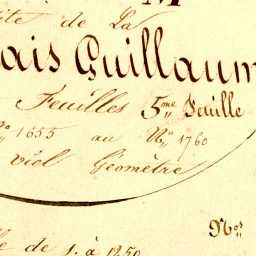 M
ite de La
ais Guillaum
Feuilles 5.me Feuille
No 1655 au No 1760
viol Géomètre
Nos
le de 1. à 1250